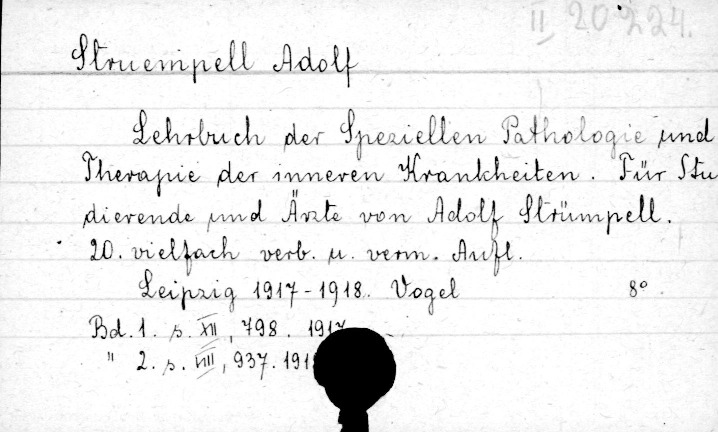 II 20224.
Struempell Adolf
Lehrbuch der Speziellen Pathologie und
Therapie der inneren Krankheiten. Für Stu
dierende und Ärzte von Adolf Strümpell.
20. vielfach verb. u. verm. Aufl.
Leipzig 1917-1918. Vogel 8°.
Bd. 1. s. XII, 798. 1917
" 2. s. VIII, 937. 191